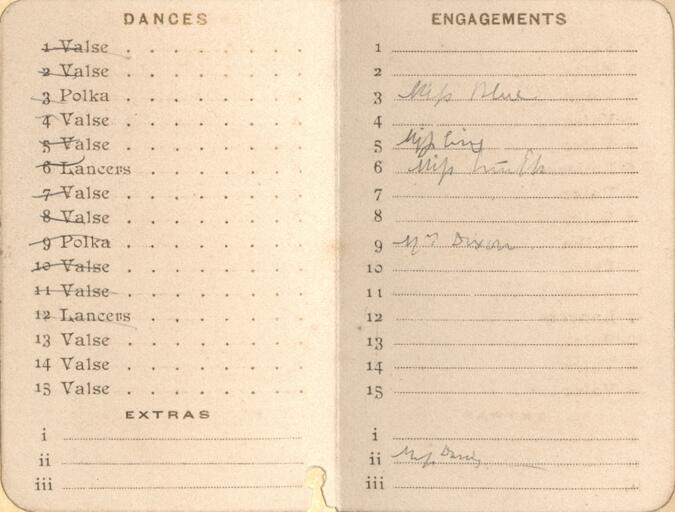 DANCES
1 Valse
2 Valse
3 Polka
4 Valse
5 Valse
6 Lancers
7 Valse
8 Valse
9 Polka
10 Valse
11 Valse
12 Lancers
13 Valse
14 Valse
15 Valse
EXTRAS
i
ii
iii
ENGAGEMENTS
1
2
3 Miss
4
5 Miss
6 Miss
7
8
9 Mrs Dixon
10
11
12
13
14
15
i
ii Miss Davis
iii